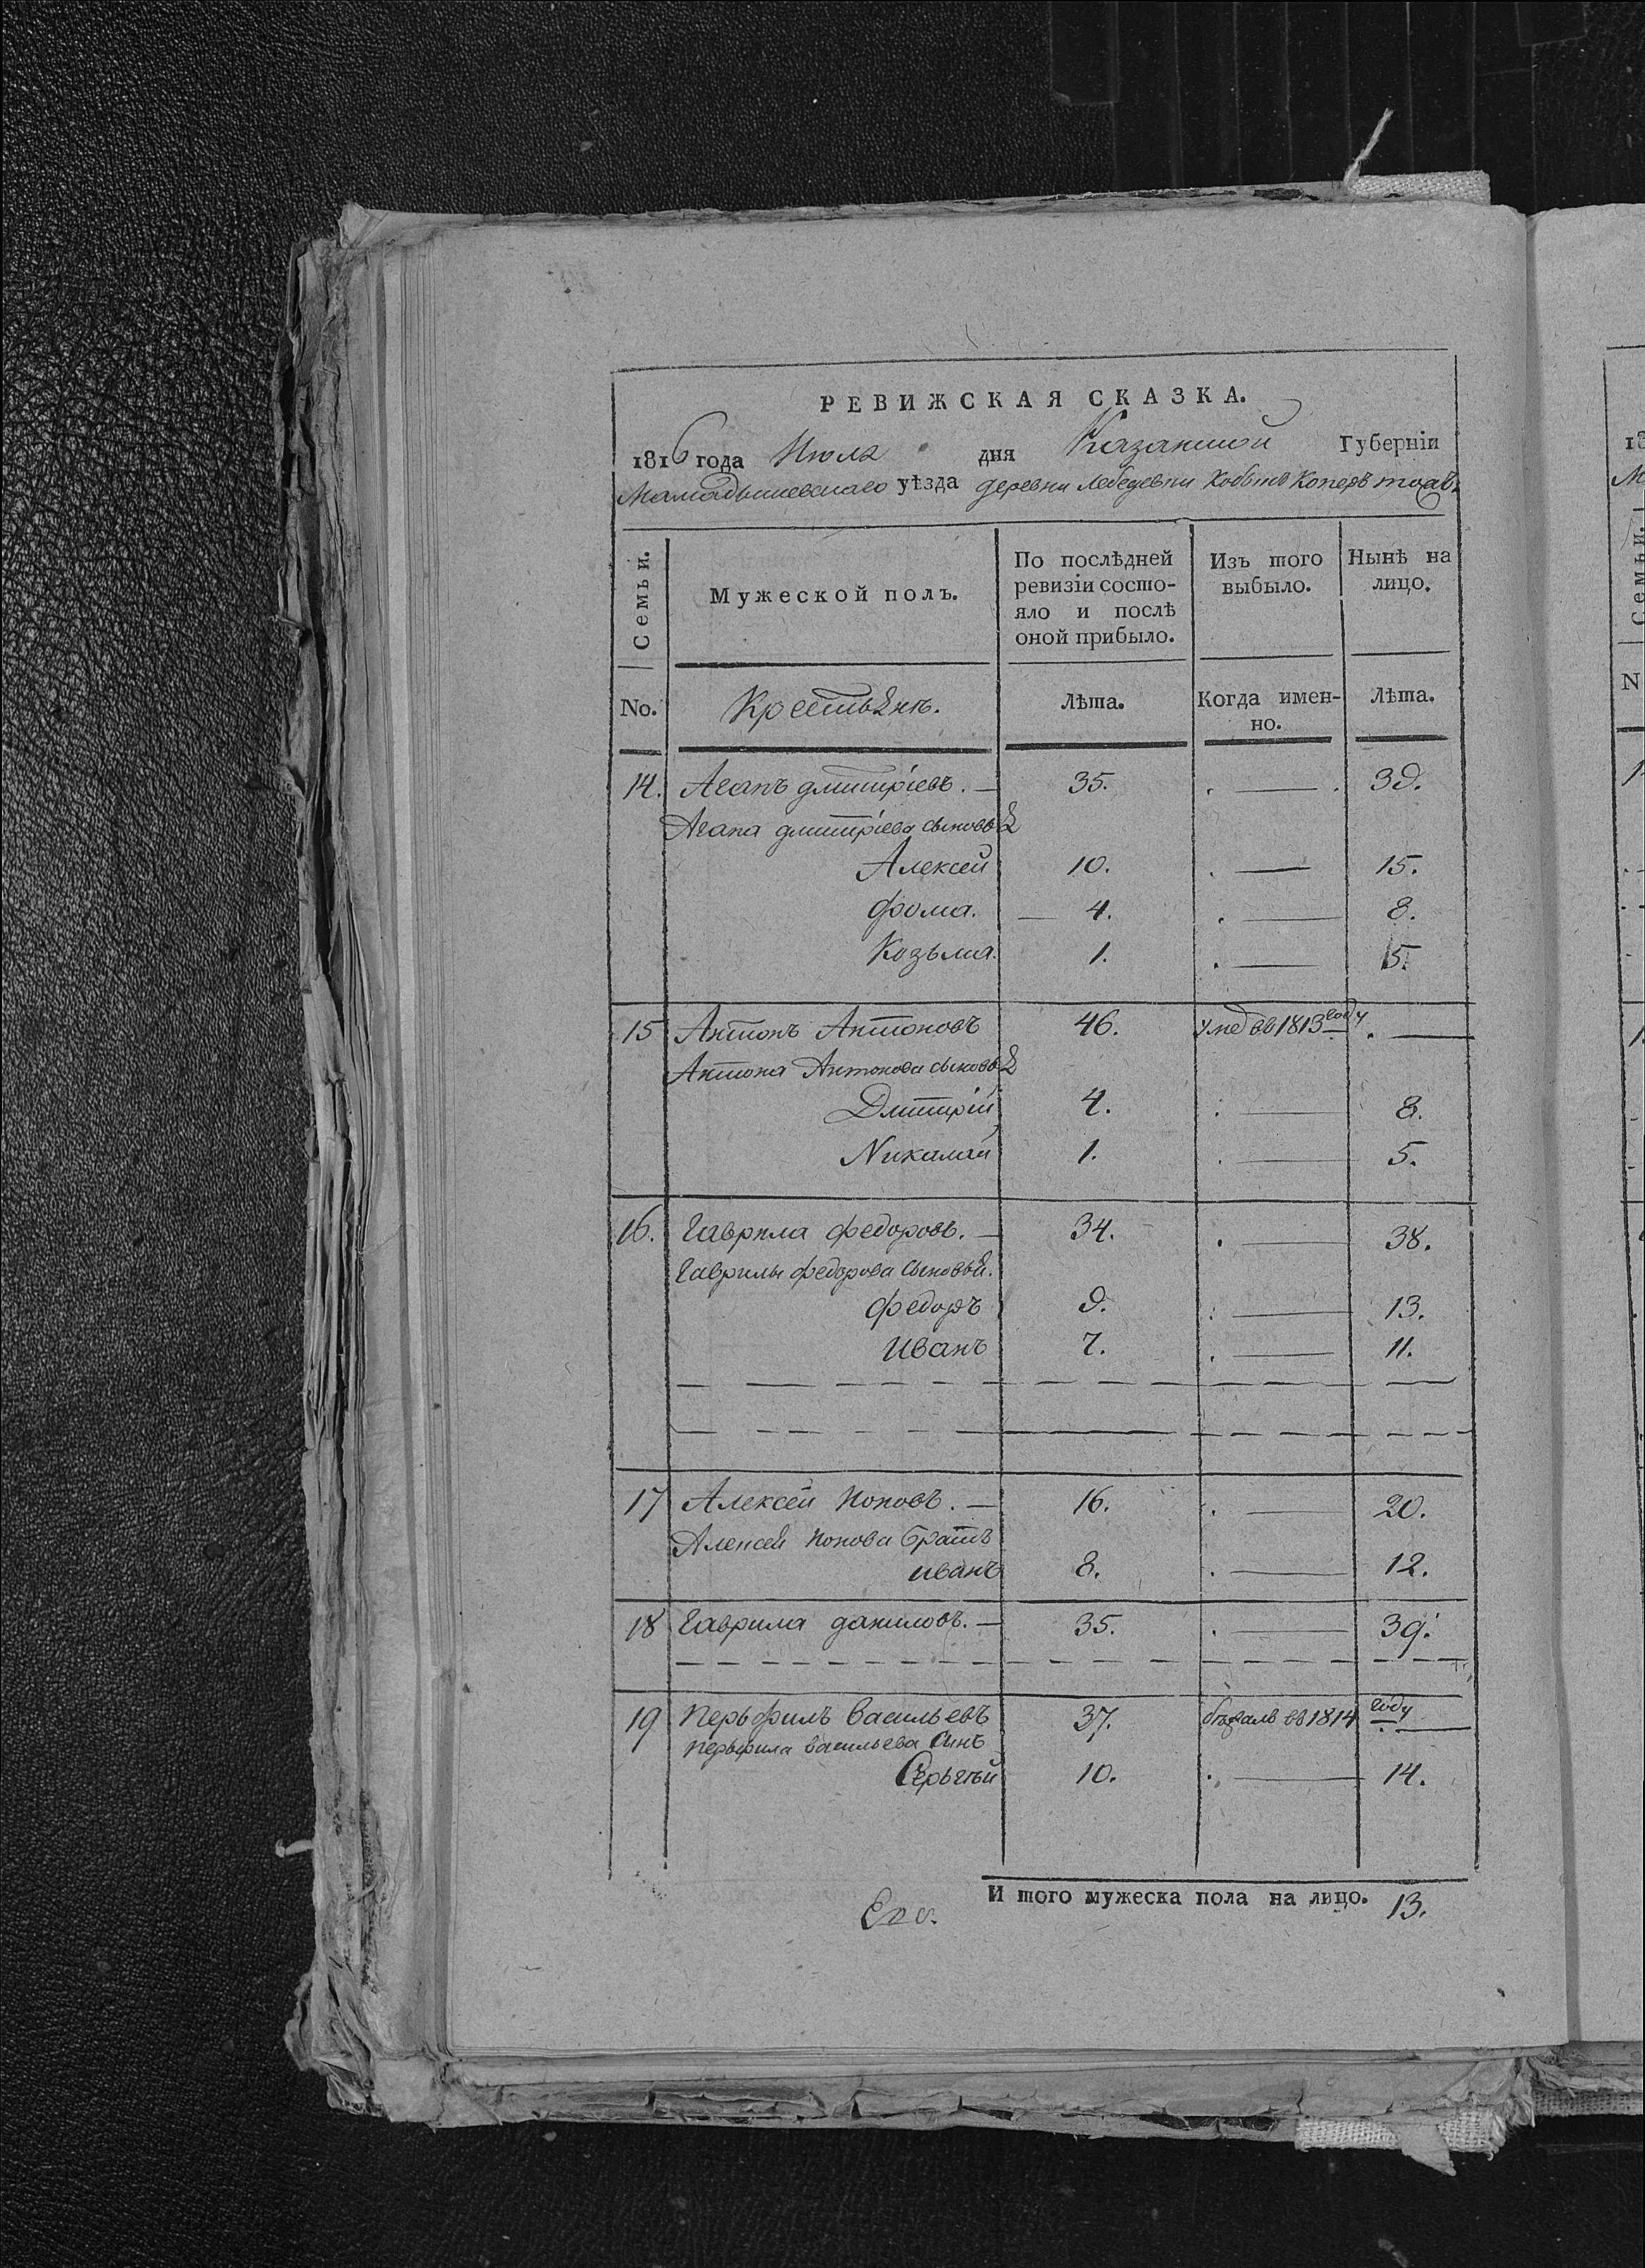 РЕВИЖСКАЯ СКАЗКА.
1816 года Июля дня Казанской Губерніи
Мамадышевскаго уѣзда деревни Лебедевки
Семьи.
Мужеской полъ.
По послѣдней ревизіи состояло и послѣ оной прибыло.
Изъ того выбыло.
Нынѣ на лицо.
No. Крестьянъ. Лѣта. Когда именно. Лѣта.
14. Агапъ дмитріевъ. — 35. . — . 39.
Агапа дмитріева сыновья
Алексей 10. . — 15.
фома. — 4. . — 8.
Козьма. 1. . — 5.
15 Антонъ Антоновъ 46. умре въ 1813 году . —
Антона Антонова сыновья
Дмитрій 4. . — 8.
Никалай 1. . — 5.
16. Гаврила федоровъ. — 34. . — 38.
Гаврилы федорова сыновья.
федоръ 9. . — 13.
Иванъ 7. . — 11.
17 Алексей Поповъ. — 16. . — 20.
Алексея Попова братъ
иванъ 8. . — 12.
18 Гаврила даниловъ. — 35. . — 39.
19 Перьфилъ васильевъ 37. бѣжалъ въ 1814 году . —
перьфила васильева сынъ
Серьгѣй 10. . — 14.
И того мужеска пола на лицо. 13.